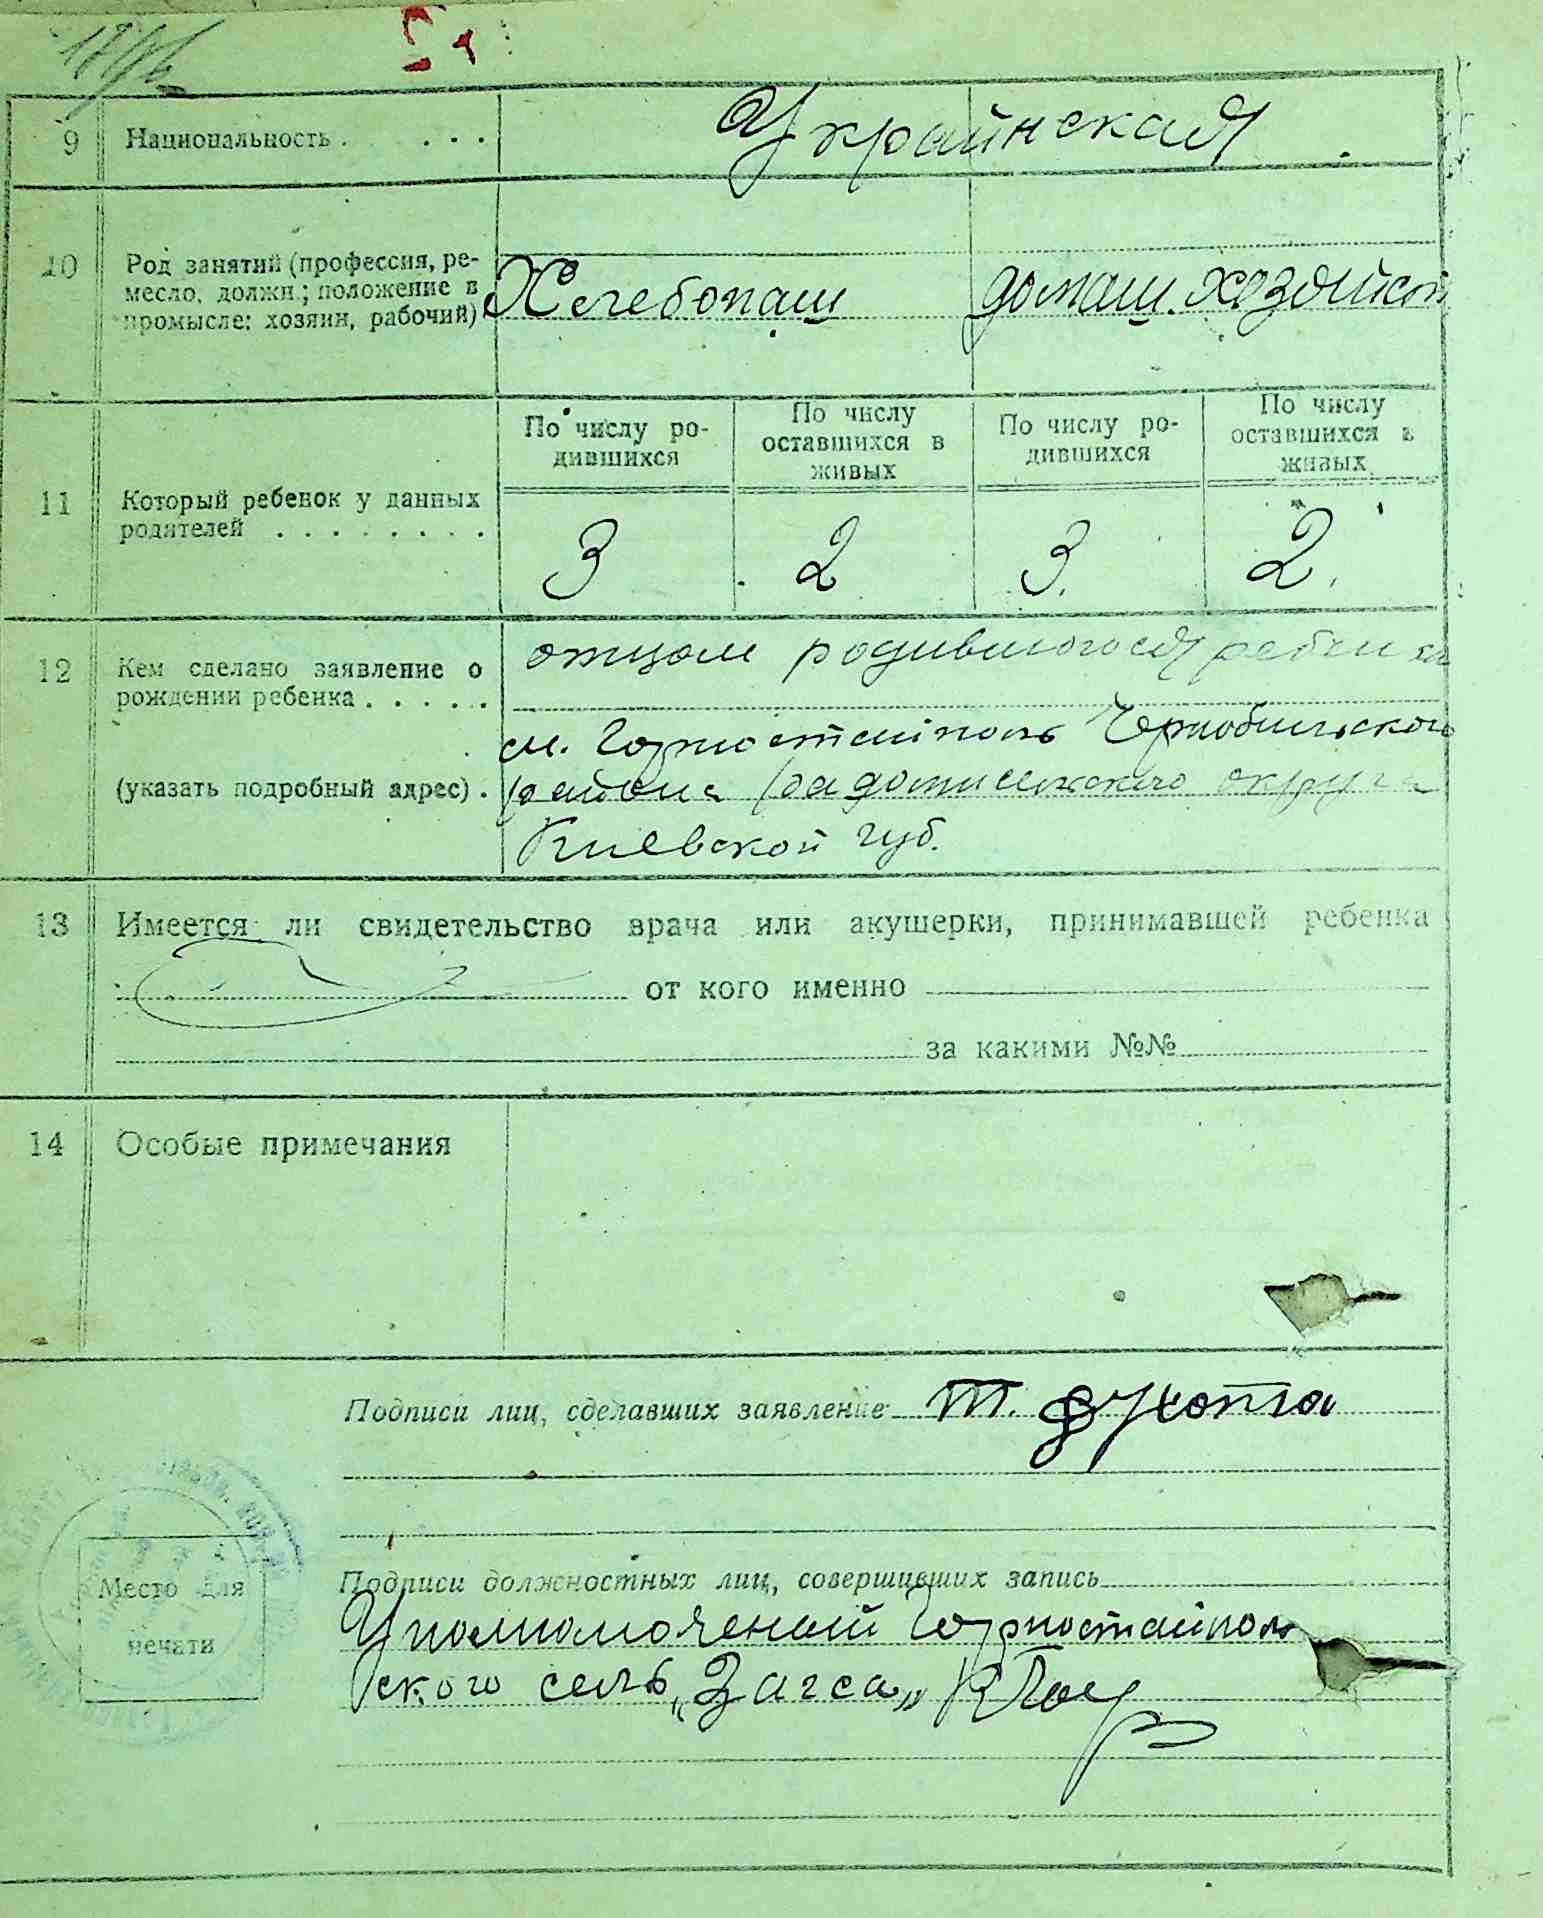 9 Национальность . . . . Украинская
10 Род занятий (профессия, ре-
месло, должн.; положение в
промысле: хозяин, рабочий)
Хлебопаш домаш. хозяйст
По числу ро-
дившихся
По числу
оставшихся в
живых
По числу ро-
дившихся
По числу
оставшихся в
живых
11 Который ребенок у данных
родителей . . . . . . . .
3 2 3. 2.
12 Кем сделано заявление о
рождении ребенка . . . . .
(указать подробный адрес) .
отцом родившогося ребенка
м. Горностайполь Чернобильского
района Радомисльского округа
Киевской губ.
13 Имеется ли свидетельство врача или акушерки, принимавшей ребенка
от кого именно
за какими №№
14 Особые примечания
Подписи лиц, сделавших заявление Т.
Место для
печати
Подписи должностных лиц, совершивших запись
Уполномоченый Горностайполь
ского сель „Загса„